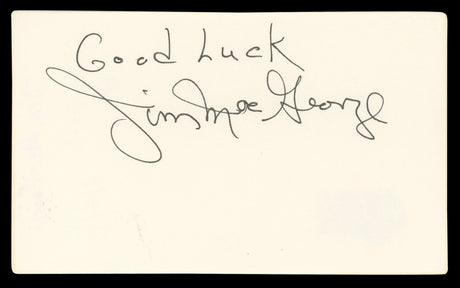 Good Luck
Jim Mac George